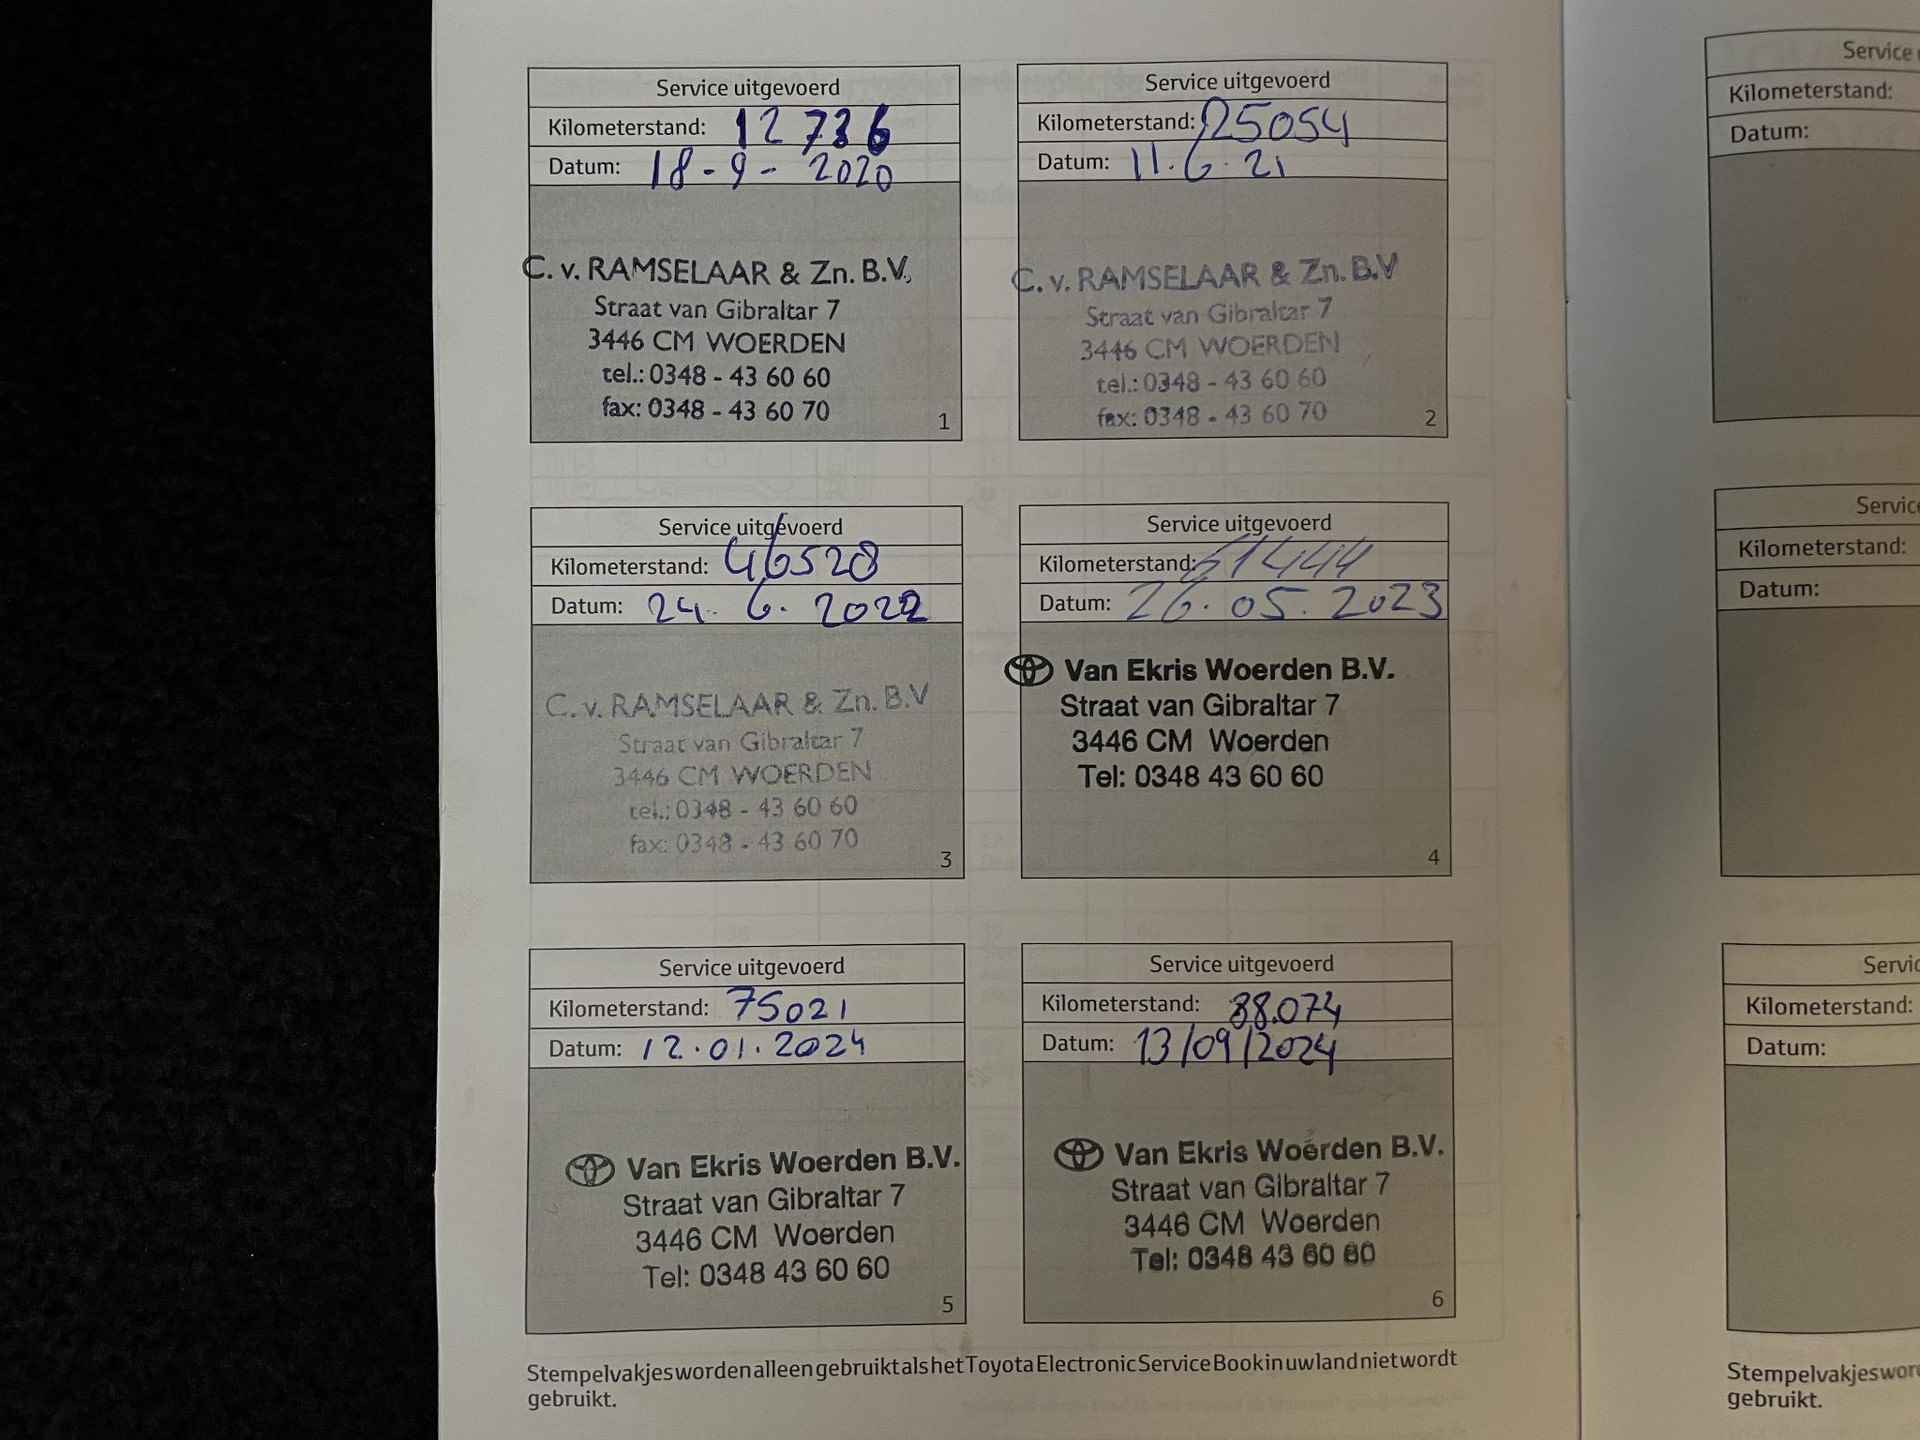 Service uitgevoerd
Kilometerstand: 12736
Datum: 18-9-2020
C. v. RAMSELAAR & Zn. B.V.
Straat van Gibraltar 7
3446 CM WOERDEN
tel.: 0348 - 43 60 60
fax: 0348 - 43 60 70
1
Service uitgevoerd
Kilometerstand: 25054
Datum: 11.6.21
C. v. RAMSELAAR & Zn. B.V
Straat van Gibraltar 7
3446 CM WOERDEN
tel.: 0348 - 43 60 60
fax: 0348 - 43 60 70
2
Service uitgevoerd
Kilometerstand: 46528
Datum: 24.6.2022
C. v. RAMSELAAR & Zn. B.V
Straat van Gibraltar 7
3446 CM WOERDEN
tel.: 0348 - 43 60 60
fax: 0348 - 43 60 70
3
Service uitgevoerd
Kilometerstand: 61444
Datum: 26.05.2023
Van Ekris Woerden B.V.
Straat van Gibraltar 7
3446 CM Woerden
Tel: 0348 43 60 60
4
Service uitgevoerd
Kilometerstand: 75021
Datum: 12.01.2024
Van Ekris Woerden B.V.
Straat van Gibraltar 7
3446 CM Woerden
Tel: 0348 43 60 60
5
Service uitgevoerd
Kilometerstand: 88.074
Datum: 13/09/2024
Van Ekris Woerden B.V.
Straat van Gibraltar 7
3446 CM Woerden
Tel: 0348 43 60 60
6
Stempelvakjes worden alleen gebruikt als het Toyota Electronic Service Book in uw land niet wordt
gebruikt.
Service
Kilometerstand:
Datum:
Service
Kilometerstand:
Datum:
Kilometerstand:
Datum:
Stempelvakjes
gebruikt.